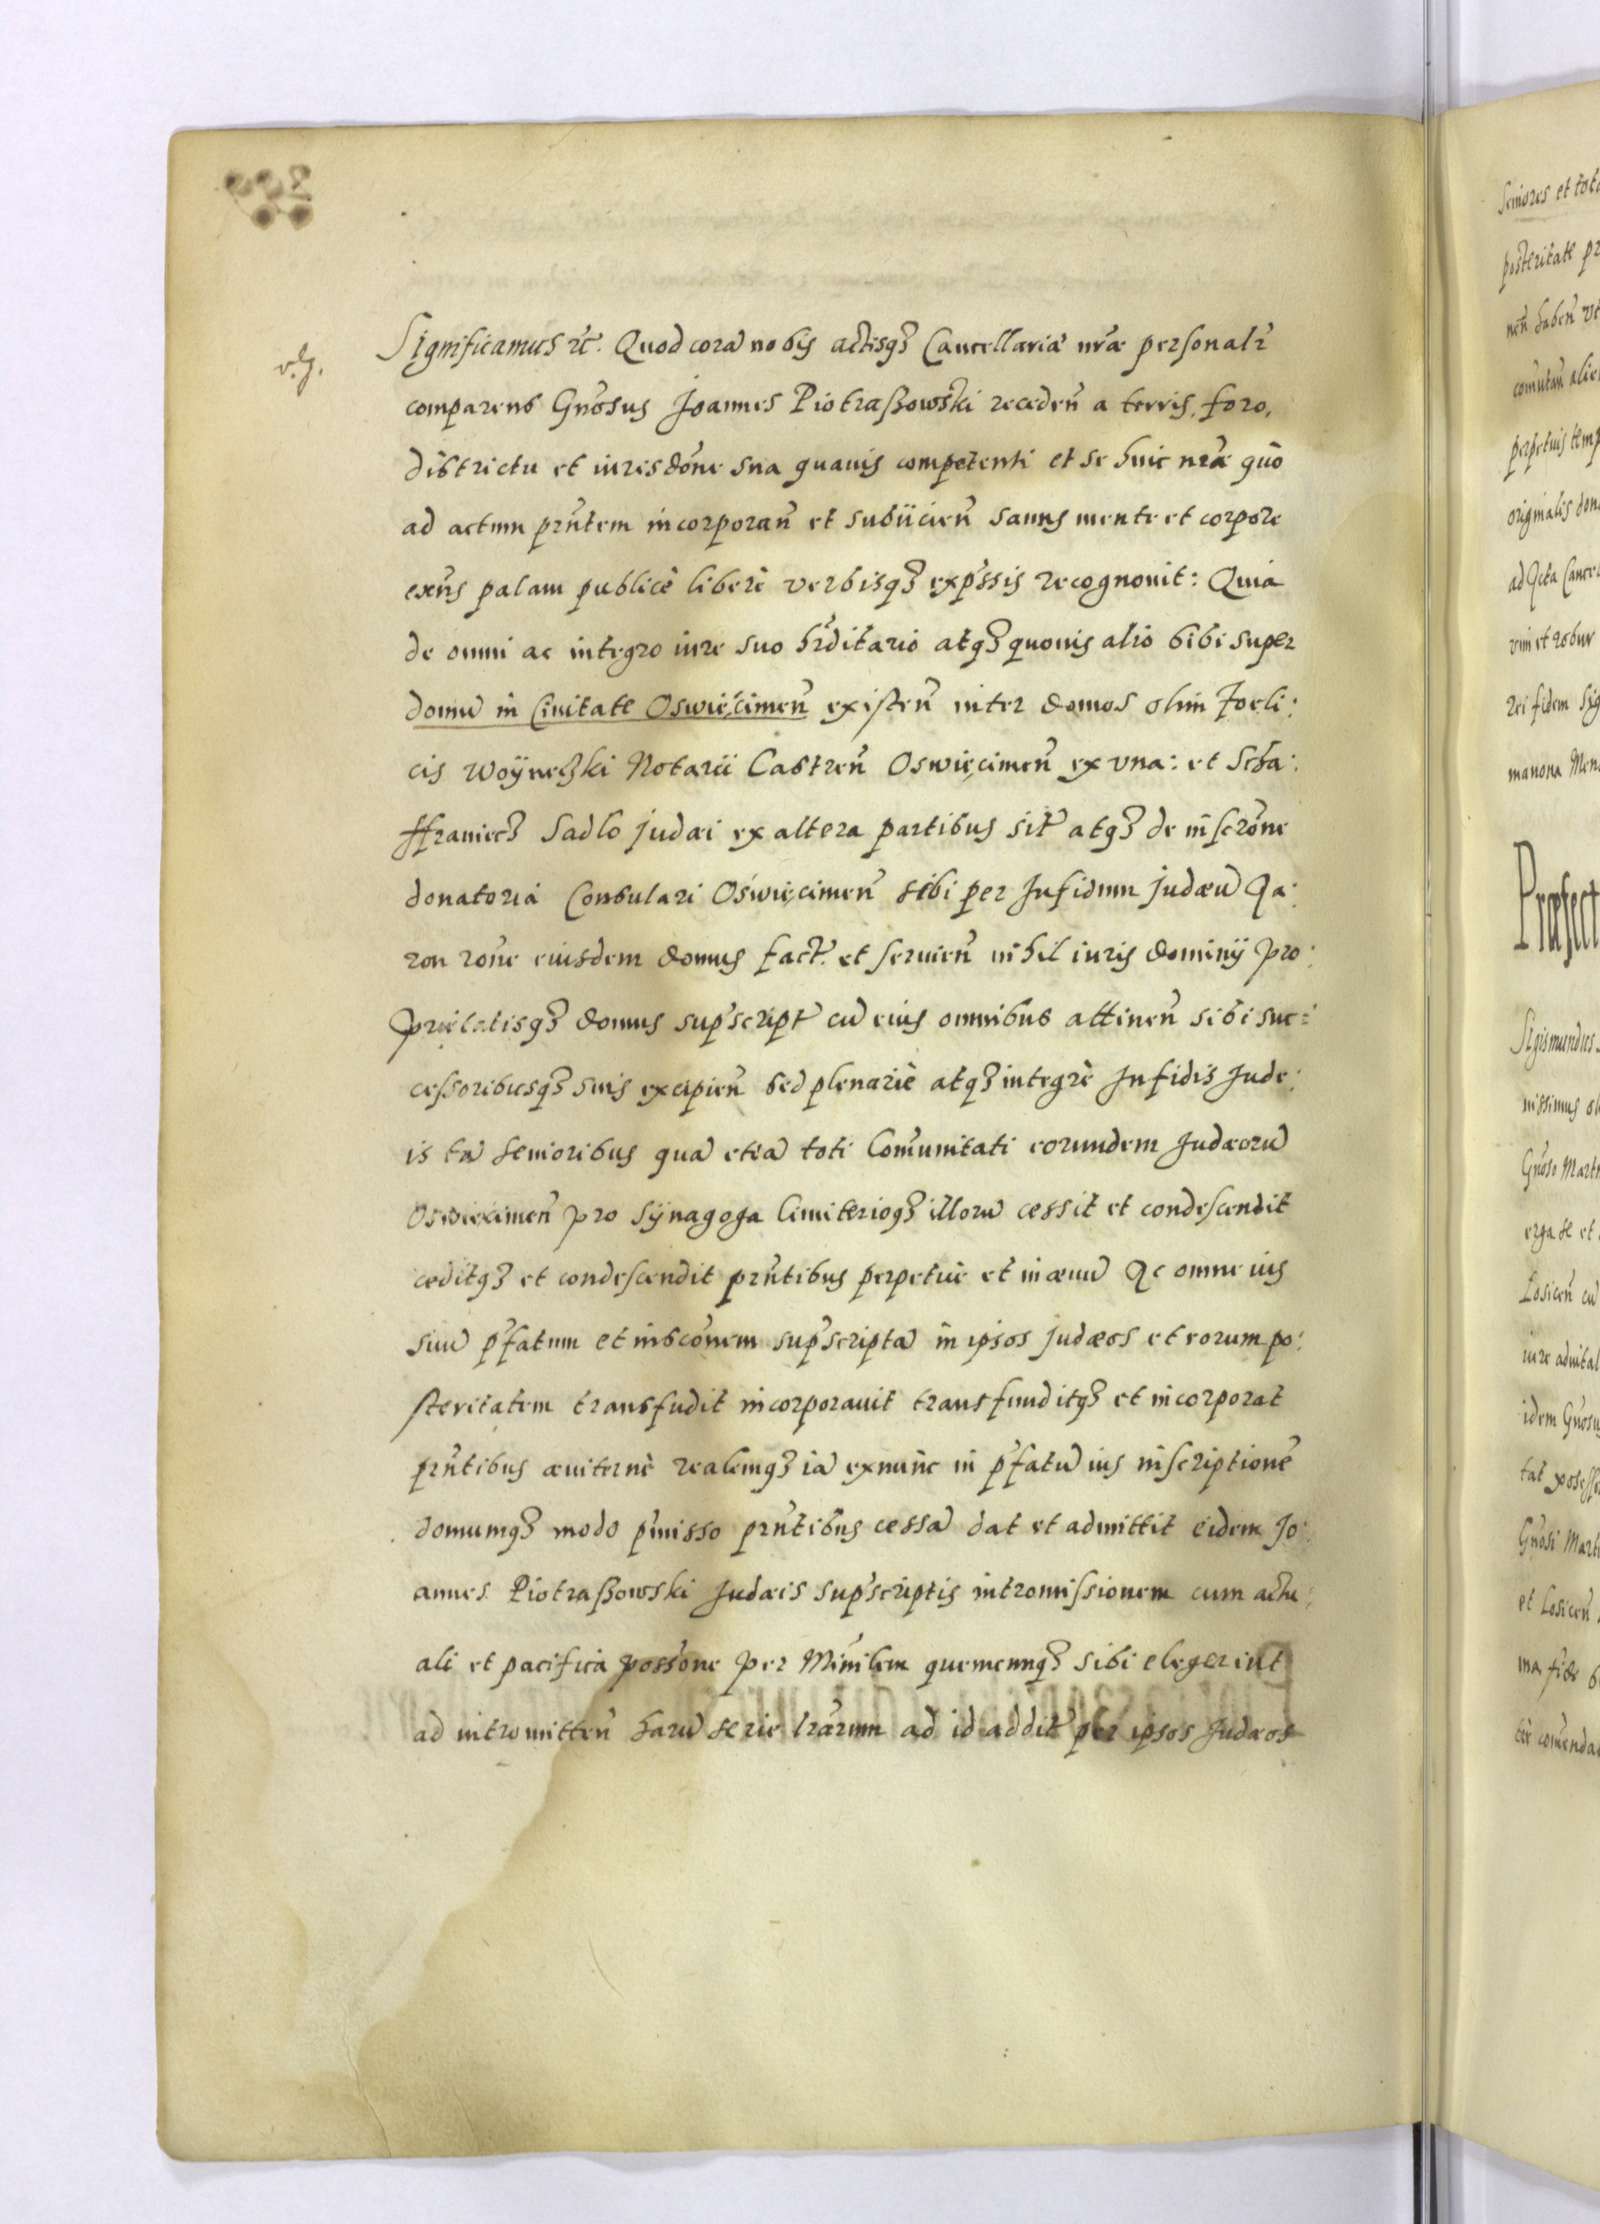 v. g.
Significamus etc. Quod corã nobis actisq3 Cancellariæ nr̃æ personalr̃
comparens Gnõsus Joannes Piotraßowski receden̄ a terris, foro,
districtu et iurisdõne sua quauis competenti et se huic nr̃æ quò
ad actum prñtem incorporan̄ et subiicien̄ sanus mente et corpore
exñs palam publicè liberè verbisq3 exp̃ssis recognouit: Quia
de omni ac integro iure suo hr̃ditario atq3 quouis alio sibi super
domũ in Ciuitate Oswięcimen̄ existen̄ inter domos olim Foeli:
cis Woÿneßki Notarii Castren̄ Oswięcimen̄ ex vna: et Scha:
ffraniec3 Sadlo judæi ex altera partibus sit̃ atq3 de inscrõne
donatoria Consulari Oświęcimen̄ sibi per Infidum judæũ Aa:
ron rõne eiusdem domus fact̃ et seruien̄ nihil iuris dominij pro:
prietatisq3 domus sup̃script̃ cũ eius omnibus attinen̄ sibi suc:
cessoribusq3 suis excipien̄ sed plenariè atq3 integrè Infidis Jude:
is tã senioribus quã etiã toti Com̃unitati eorundem Judæorũ
Oswiecimen̄ pro Sÿnagoga Cimiterioq3 illorũ cessit et condescendit
ceditq3 et condescendit prñtibus perpetuè et in æuũ Ac omne ius
suũ p̃fatum et inscõnem sup̃scriptã in ipsos judæos et eorum po:
steritatem transfudit incorporauit transfunditq3 et incorporat
prñtibus æuiternè realemq3 iã exnunc in p̃fatũ ius inscriptionẽ
domumq3 modo p̃misso prñtibus cessã dat et admittit eidem Jo:
annes Piotraßowski Judæis sup̃scriptis intromissionem cum actu:
ali et pacifica possõne per Min̄lem quemcunq3 sibi elegerint
ad intromitten̄ harũ serie lr̃arum ad id addit̃ per ipsos Judæos
Seniores et tot
posteritate pr
nen̄ haben̄ vt
com̃utan̄ alie
perpetuis temp
originalis don
ad Acta Cancel
vim et robur
rei fidem Sig
manona Men
Præfect
Sigismundus
nissimus ol
Gnõso Marti
erga se et
Losicen̄ cũ
iure aduital
idem Gnõsus
tat possess
Gnõsi Marti
et Losicen̄
ma fide
ter com̃enda